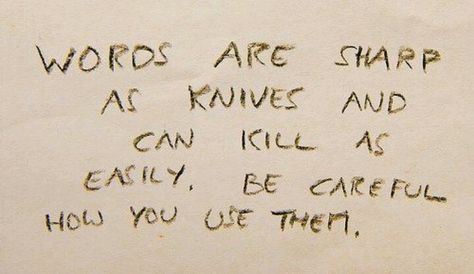 WORDS ARE SHARP
AS KNIVES AND
CAN KILL AS
EASILY. BE CAREFUL
HOW YOU USE THEM.